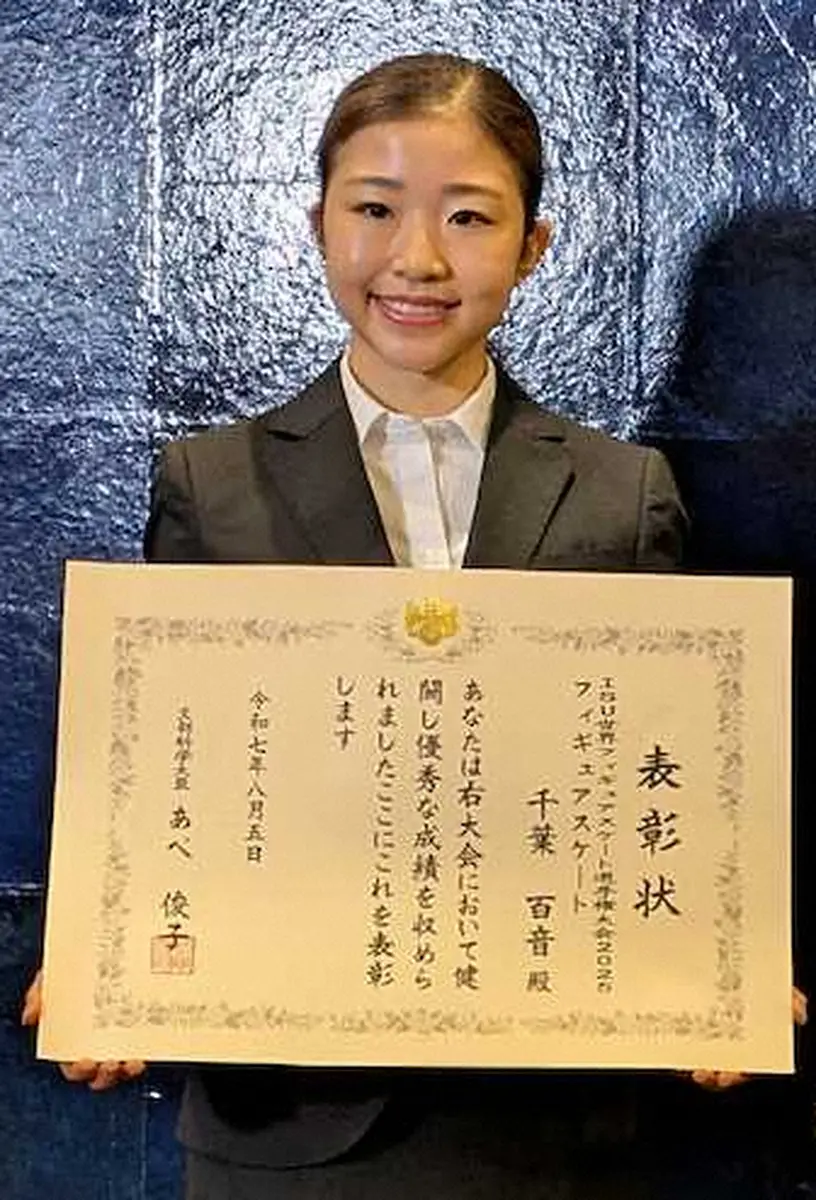 表彰状
ISU世界フィギュアスケート選手権大会2025
フィギュアスケート
千葉 百音 殿
あなたは右大会において健
闘し優秀な成績を収めら
れましたここにこれを表彰
します
令和七年八月五日
文部科学大臣 あべ 俊子